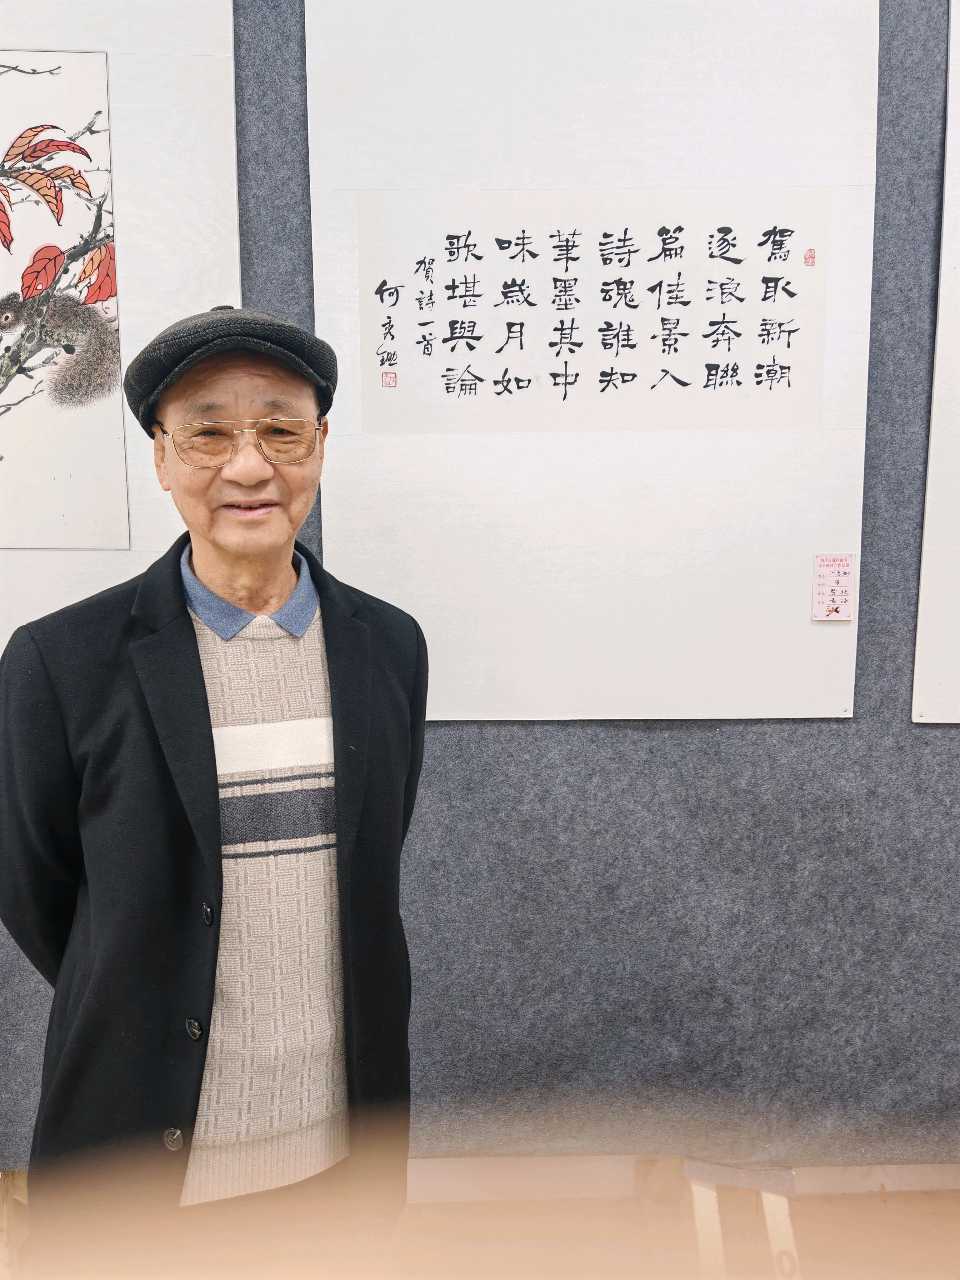 駕取新潮
逐浪奔聯
篇佳景入
詩魂誰知
筆墨其中
味歲月如
歌堪與論
賀詩一首
何